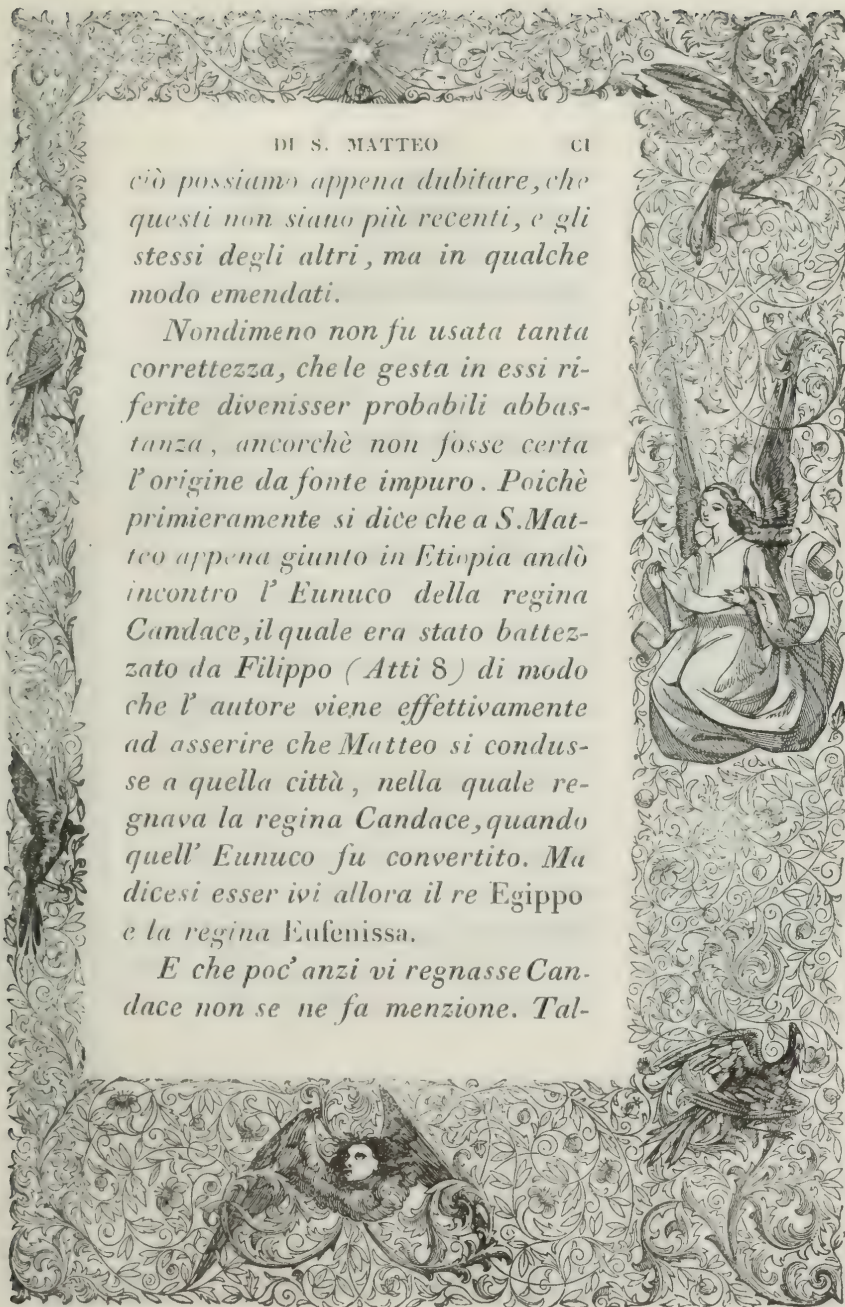 DI S. MATTEO CI
ciò possiamo appena dubitare, che
questi non siano più recenti, e gli
stessi degli altri, ma in qualche
modo emendati.
Nondimeno non fu usata tanta
correttezza, che le gesta in essi ri-
ferite divenisser probabili abbas-
tanza, ancorchè non fosse certa
l'origine da fonte impuro. Poichè
primieramente si dice che a S. Mat-
teo appena giunto in Etiopia andò
incontro l' Eunuco della regina
Candace, il quale era stato battez-
zato da Filippo (Atti 8) di modo
che l' autore viene effettivamente
ad asserire che Matteo si condus-
se a quella città, nella quale re-
gnava la regina Candace, quando
quell' Eunuco fu convertito. Ma
dicesi esser ivi allora il re Egippo
e la regina Eufenissa.
E che poc' anzi vi regnasse Can-
dace non se ne fa menzione. Tal-